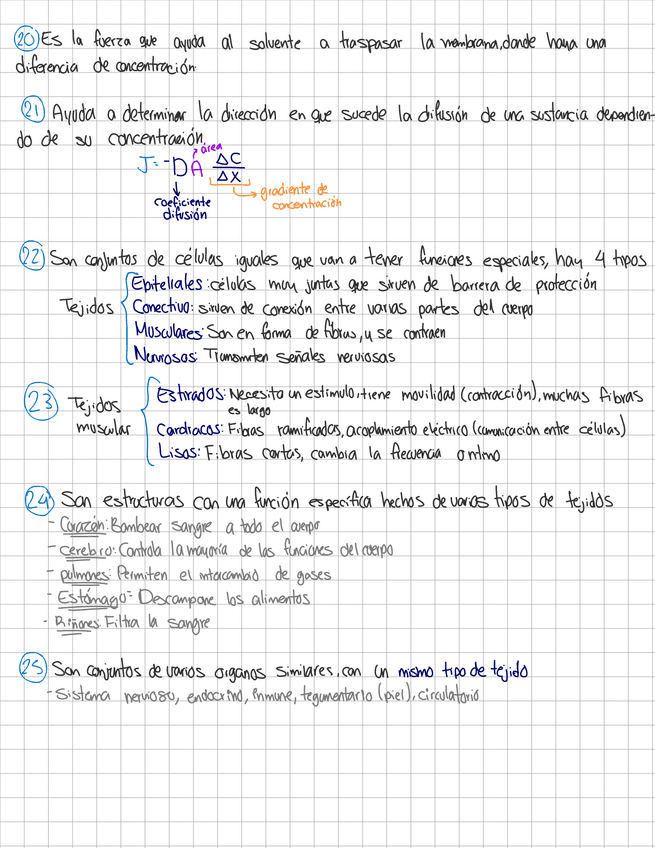 20 Es la fuerza que ayuda al solvente a traspasar la membrana, donde haya una
diferencia de concentración
21 Ayuda a determinar la dirección en que sucede la difusión de una sustancia dependien-
do de su concentración.
área
J = -DA ΔC/ΔX
gradiente de
concentración
coeficiente
difusión
22 Son conjuntos de células iguales que van a tener funciones especiales, hay 4 tipos
Tejidos
Epiteliales: células muy juntas que sirven de barrera de protección
Conectivo: sirven de conexión entre varias partes del cuerpo
Musculares: Son en forma de fibras, y se contraen
Nerviosos: Transmiten señales nerviosas
23 Tejidos
muscular
Estriados: Necesita un estímulo, tiene movilidad (contracción), muchas fibras
es largo
Cardiacos: Fibras ramificadas, acoplamiento eléctrico (comunicación entre células)
Lisos: Fibras cortas, cambia la frecuencia o ritmo
24 Son estructuras con una función específica hechos de varios tipos de tejidos
- Corazón: Bombear sangre a todo el cuerpo
- cerebro: Controla la mayoría de las funciones del cuerpo
- pulmones: Permiten el intercambio de gases
- Estómago: Descompone los alimentos
- Riñones: Filtra la sangre
25 Son conjuntos de varios organos similares, con un mismo tipo de tejido
- Sistema nervioso, endocrino, inmune, tegumentario (piel), circulatorio